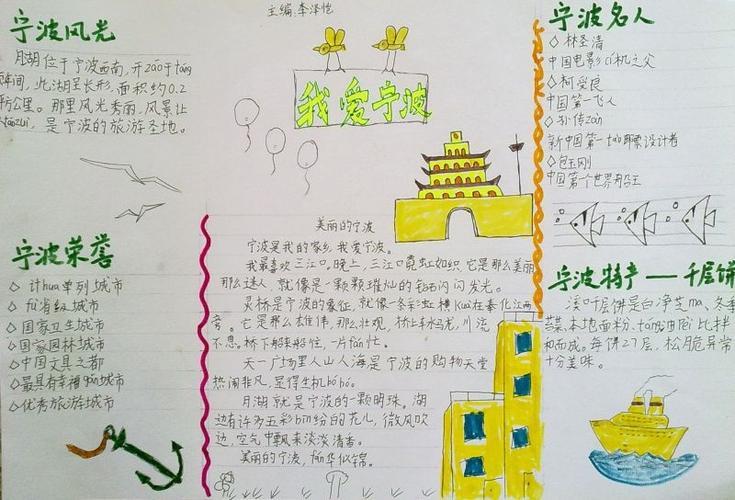 主编:李泽恺
宁波风光
月湖位于宁波西南,开záo于táng
年间,此湖呈长形,面积约0.2
平方公里。那里风光秀丽,风景让
táozuì,是宁波的旅游圣地。
宁波荣誉
◇计huà单列城市
◇fù省级城市
◇国家卫生城市
◇国家园林城市
◇中国文具之都
◇最具有幸福gǎn城市
◇优秀旅游城市
我爱宁波
美丽的宁波
宁波是我的家乡,我爱宁波。
我最喜欢三江口。晚上,三江口霓虹如织,它是那么美丽
那么迷人,就像是一颗颗璀灿的钻石闪闪发光。
灵桥是宁波的象征,就像一条彩虹横kuà在奉化江两
旁。它是那么雄伟,那么壮观,桥上车水马龙,川流
不息。桥下船来船往,一片fán忙。
天一广场里人山人海是宁波的购物天堂
热闹非凡,显得生机bóbó。
月湖就是宁波的一颗明珠。湖
边有许多五彩bīn纷的花儿,微风吹
过,空气中飘来淡淡清香。
美丽的宁波,fán华似锦。
宁波名人
◇林圣清
中国电影cí机之父
◇柯受良
中国第一飞人
◇孙传zhé
新中国第一táo邮票设计者
◇包玉刚
中国第个世界船王
宁波特产——千层饼
溪千层饼是白净芝má、冬季
蝶、本地面粉、táng油
和而成。每饼27层,松脆异常
十分美味。